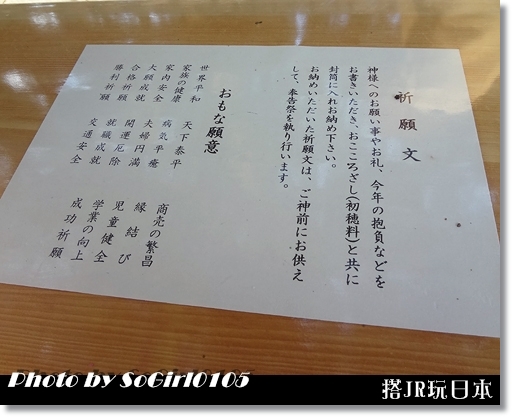 祈願文
神様へのお願い事やお礼、今年の抱負などを
お書きいただき、おこころざし(初穂料)と共に
封筒に入れお納め下さい。
お納めいただいた祈願文は、ご神前にお供え
して、奉告祭を執り行います。
おもな願意
世界平和 天下泰平 商売の繁昌
家族の健康 病気平癒 縁結び
家内安全 夫婦円満 児童健全
大願成就 開運厄除 学業の向上
合格祈願 就職成就 成功祈願
勝利祈願 交通安全
Photo by SoGirl0105
搭JR玩日本